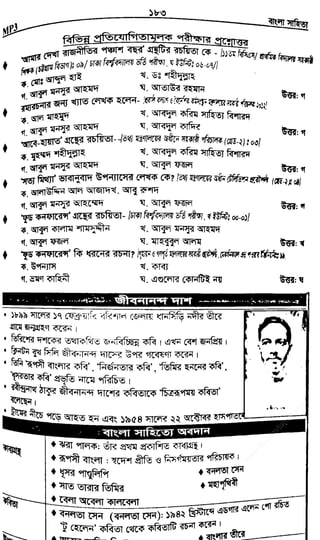 ১৮৩
বাংলা সাহিত্য
MP3
বিভিন্ন প্রতিযোগিতামূলক পরীক্ষার প্রশ্নোত্তর
'আমার দেখা রাজনীতির পঞ্চাশ বছর' গ্রন্থটির রচয়িতা কে -
ক. মোঃ আব্দুল হাই খ. ডঃ শহীদুল্লাহ
গ. আবুল মনসুর আহমদ ঘ. আতাউর রহমান উত্তর: গ
রম্যরচনার জন্য খ্যাত লেখক হলেন-
ক. আল মাহমুদ খ. আবদুল করিম সাহিত্য বিশারদ
গ. আবুল মনসুর আহমদ ঘ. আবদুল কাদির উত্তর: গ
'আবে-হায়াত' গ্রন্থের রচয়িতা-
ক. মুহম্মদ শহীদুল্লাহ খ. আবদুল করিম সাহিত্য বিশারদ
গ. আবুল মনসুর আহমদ ঘ. আবুল ফজল উত্তর: গ
'সত্য মিথ্যা' ভাবানুবাদ উপন্যাসের লেখক কে?
ক. আলাউদ্দিন আল আজাদ খ. আবু রুশদ
গ. আবুল মনসুর আহম্মেদ ঘ. আবুল ফজল উত্তর: গ
'ফুড কনফারেন্স' গ্রন্থের রচয়িতা-
ক. আবুল কালাম শামসুদ্দীন খ. আবুল মনসুর আহমদ
গ. আবুল ফজল ঘ. মাহবুবুল আলম উত্তর: খ
'ফুড কনফারেন্স' কি ধরনের রচনা?
ক. উপন্যাস খ. কাব্য
গ. ভ্রমণ কাহিনী ঘ. এগুলোর কোনটিই নয় উত্তর: ঘ
জীবনানন্দ দাশ
১৮৯৯ সালের ১৭ ফেব্রুয়ারি বরিশাল জেলায় ধানসিড়ি নদীর তীরে
গ্রামে জন্মগ্রহণ করেন।
তিরিশের দশকের তথাকথিত জনবিচ্ছিন্ন কবি। এখন বেশ জনপ্রিয়।
ক্লিনটন বুথ সিলি জীবনানন্দ দাসের উপর গবেষণা করেন।
তিনি 'রূপসী বাংলার কবি', 'নির্জনতার কবি', 'তিমির হননের কবি',
'ধূসরতার কবি' প্রভৃতি নামে পরিচিত।
রবীন্দ্রনাথ ঠাকুর জীবনানন্দ দাশের কবিতাকে 'চিত্ররূপময় কবিতা'
বলেছেন।
ট্রামের নীচে পড়ে আহত হন এবং ১৯৫৪ সালের ২২ অক্টোবর হাসপাতালে
বাংলা সাহিত্যে অবদান
কাব্যগ্রন্থ
ঝরা পালক: তাঁর প্রথম প্রকাশিত কাব্যগ্রন্থ।
রূপসী বাংলা : স্বদেশ প্রীতি ও নিসর্গময়তার পরিচায়ক।
ধূসর পাণ্ডুলিপি বনলতা সেন
সাত তারার তিমির মহাপৃথিবী
বেলা অবেলা কালবেলা
কবিতা
বনলতা সেন (বনলতা সেন): ১৯৪২ খ্রিস্টাব্দে এডগার এলেন পো রচিত
'টু হেলেন' কবিতা থেকে কবিতাটি রচনা করেন।
বাংলার তীরে